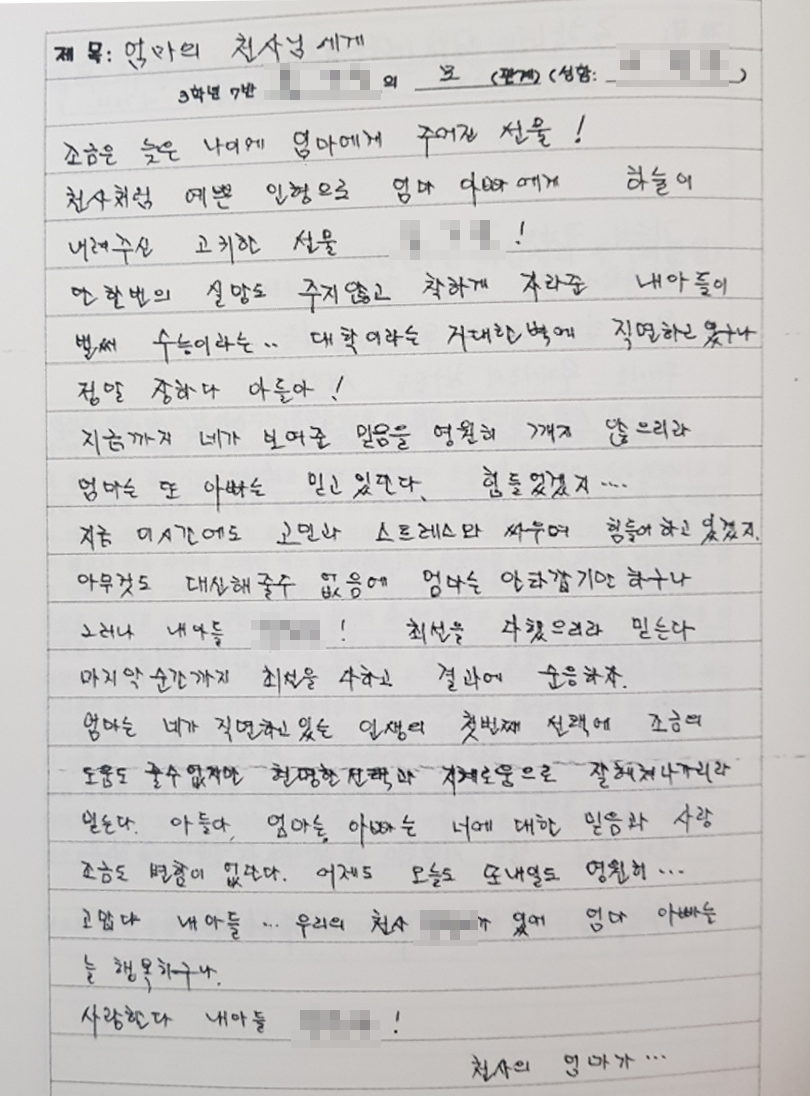 제 목: 엄마의 천사님에게
3학년 7반 의 모 (관계) (성함: )
조금은 늦은 나이에 엄마에게 주어진 선물!
천사처럼 예쁜 인형으로 엄마 아빠에게 하늘이
내려주신 고귀한 선물 !
단 한번의 실망도 주지않고 착하게 자라준 내아들이
벌써 수능이라는.. 대학이라는 거대한벽에 직면하고 있구나
정말 장하다 아들아!
지금까지 네가 보여준 믿음을 영원히 깨지 않으리라
엄마는 또 아빠는 믿고 있단다. 힘들었겠지....
지금 이시간에도 고민과 스트레스와 싸우며 힘들어 하고 있겠지.
아무것도 대신해 줄수 없음에 엄마는 안타깝기만 하구나
그러나 내아들 ! 최선을 다했으리라 믿는다
마지막 순간까지 최선을 다하고 결과에 순응하자.
엄마는 네가 직면하고 있는 인생의 첫번째 선택에 조금의
도움도 줄수 없지만 현명한 선택과 지혜로움으로 잘 헤쳐나가리라
믿는다. 아들아, 엄마는, 아빠는 너에 대한 믿음과 사랑
조금도 변함이 없단다. 어제도 오늘도 또 내일도 영원히...
고맙다 내아들... 우리의 천사 가 있어 엄마 아빠는
늘 행복하구나.
사랑한다 내아들 !
천사의 엄마가...